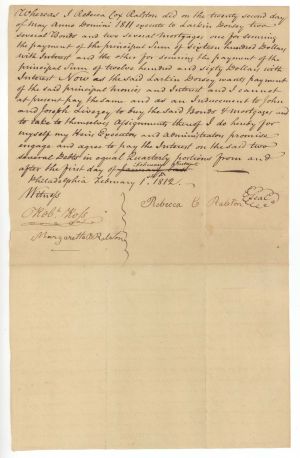 Whereas I Rebecca Cox Ralston did on the twenty second day
of May Anno Domini 1811 execute to Larkin Dorsey two
several Bonds and two several mortgages one for securing
the payment of the principal Sum of sixteen hundred Dollars
with Interest and the other for securing the payment of the
principal Sum of twelve hundred and sixty Dollars with
Interest Now as the said Larkin Dorsey wants payment
of the said principal monies and Interest and I cannot
at present pay the same and as an Inducement to John
and Joseph Livezey to buy the said Bonds & mortgages and
to take to themselves Assignments thereof I do hereby for
myself my Heirs Executors and administrators promise
engage and agree to pay the Interest on the said two
several Debts in equal Quarterly portions from and
after the first day of February
Philadelphia February 1st 1812.
Witness
Robt. Ross
Rebecca C Ralston Seal
Margaretta Ralston